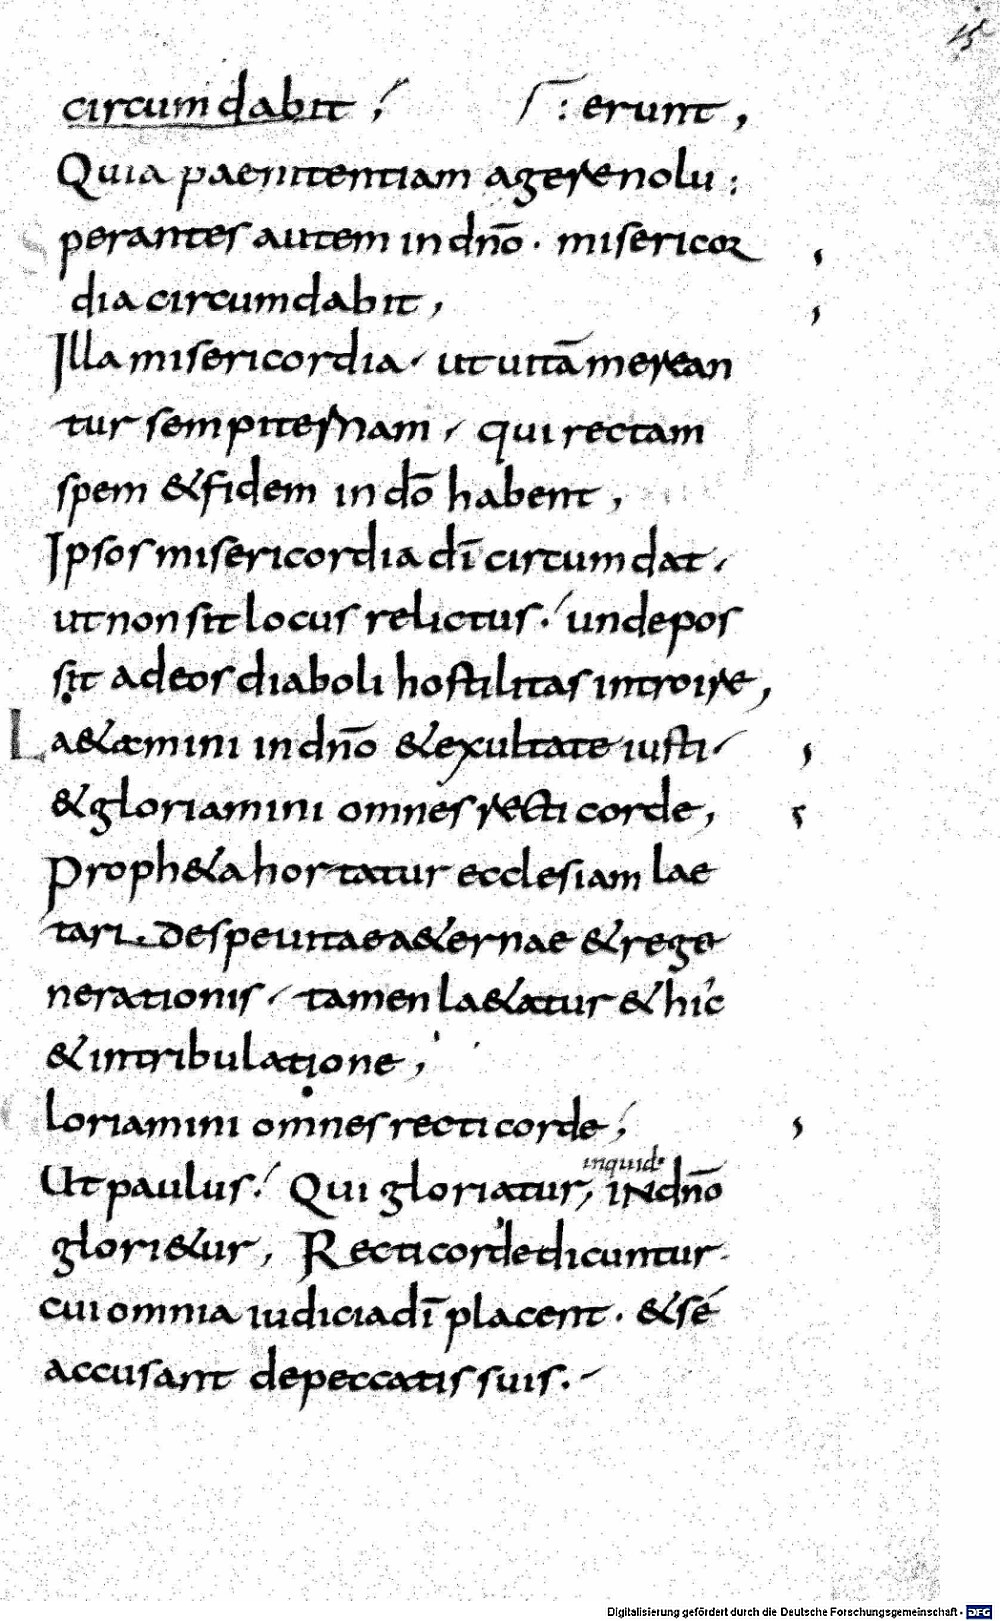 45
circumdabit ; ⌈ : erunt,
Quia paenitentiam agere nolu :
perantes autem in dnō · misericor
dia circumdabit,
Illa misericordia · ut uitā merean
tur sempiternam, qui rectam
spem & fidem in dō habent,
Ipsos misericordia dī circumdat,
ut non sit locus relictus ; unde pos
sit ad eos diaboli hostilitas introire,
La&amini in dnō & exultate iusti,
& gloriamini omnes recti corde,
Proph&a hortatur ecclesiam lae
tari . De spe uitae a&ernae & rege
nerationis, tamen la&atur & hic
& in tribulatione,
loriamini omnes recti corde ;
Ut paulus ; Qui gloriatur, inquid · IN dnō
glori&ur, Recti corde dicuntur ·
cui omnia iudicia dī placent · & sé
accusant de peccatis suis.
Digitalisierung gefördert durch die Deutsche Forschungsgemeinschaft - DFG